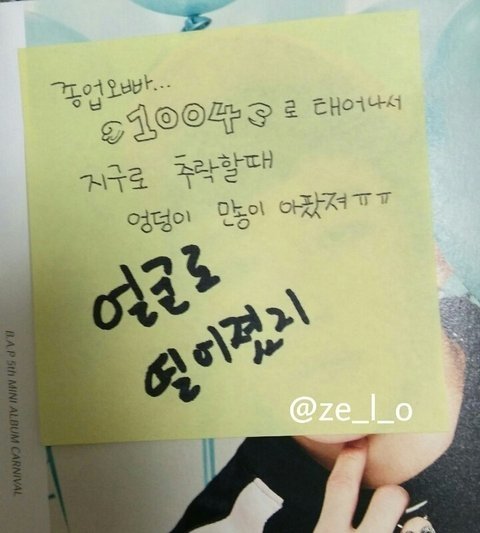 종업오빠...
1004로 태어나서
지구로 추락할때
엉덩이 만농이 아팠져ㅠㅠ
얼굴로
떨어졌지
@ze_l_o
B.A.P 5th MINI ALBUM CARNIVAL